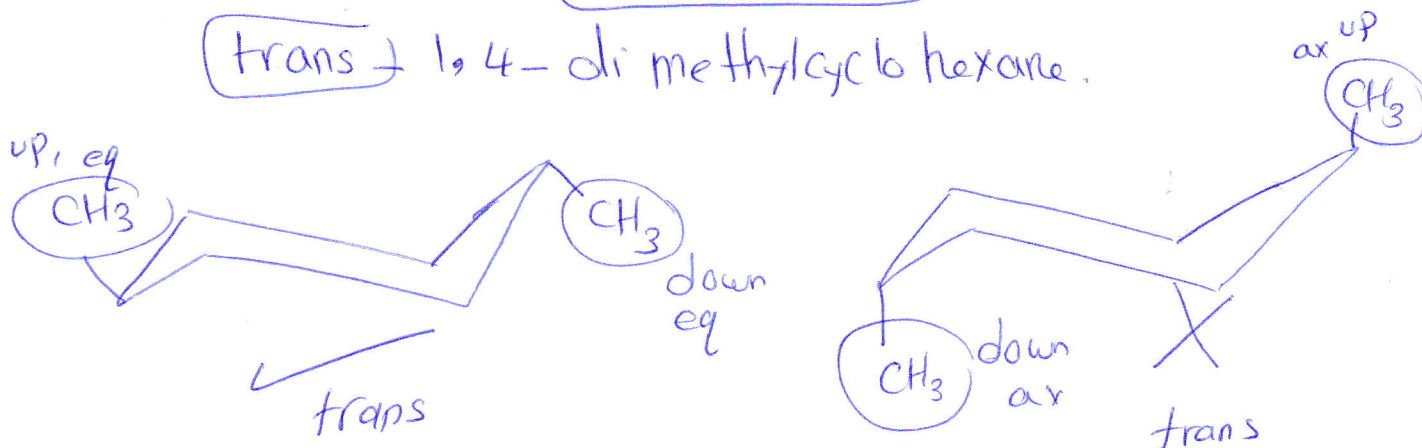 trans - 1,4 - di methylcyclo hexane.
up, eq
CH3
CH3
down
eq
trans
ax up
CH3
CH3
down
ax
trans